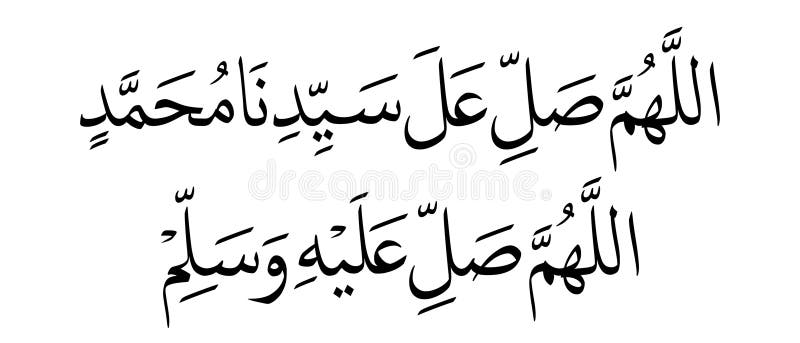 اللَّهُمَّ صَلِّ عَلَ سَيِّدِنَا مُحَمَّدٍ
اللَّهُمَّ صَلِّ عَلَيْهِ وَسَلِّمْ
dreamstime